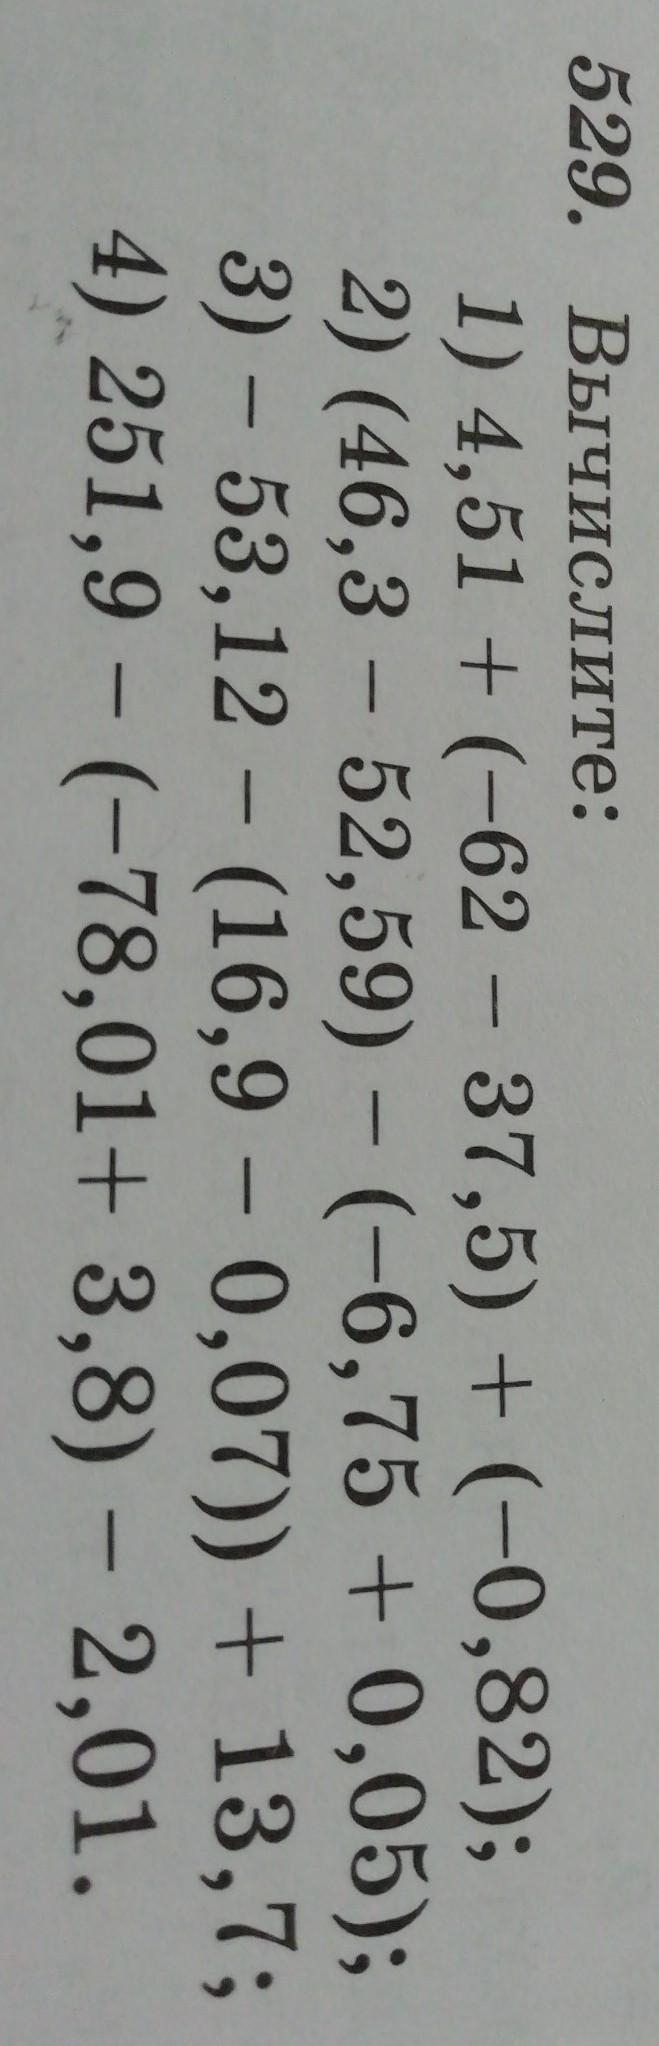 529. Вычислите:
1) 4,51 + (−62 − 37,5) + (−0,82);
2) (46,3 − 52,59) − (−6,75 + 0,05);
3) − 53,12 − (16,9 − 0,07)) + 13,7;
4) 251,9 − (−78,01+ 3,8) − 2,01.